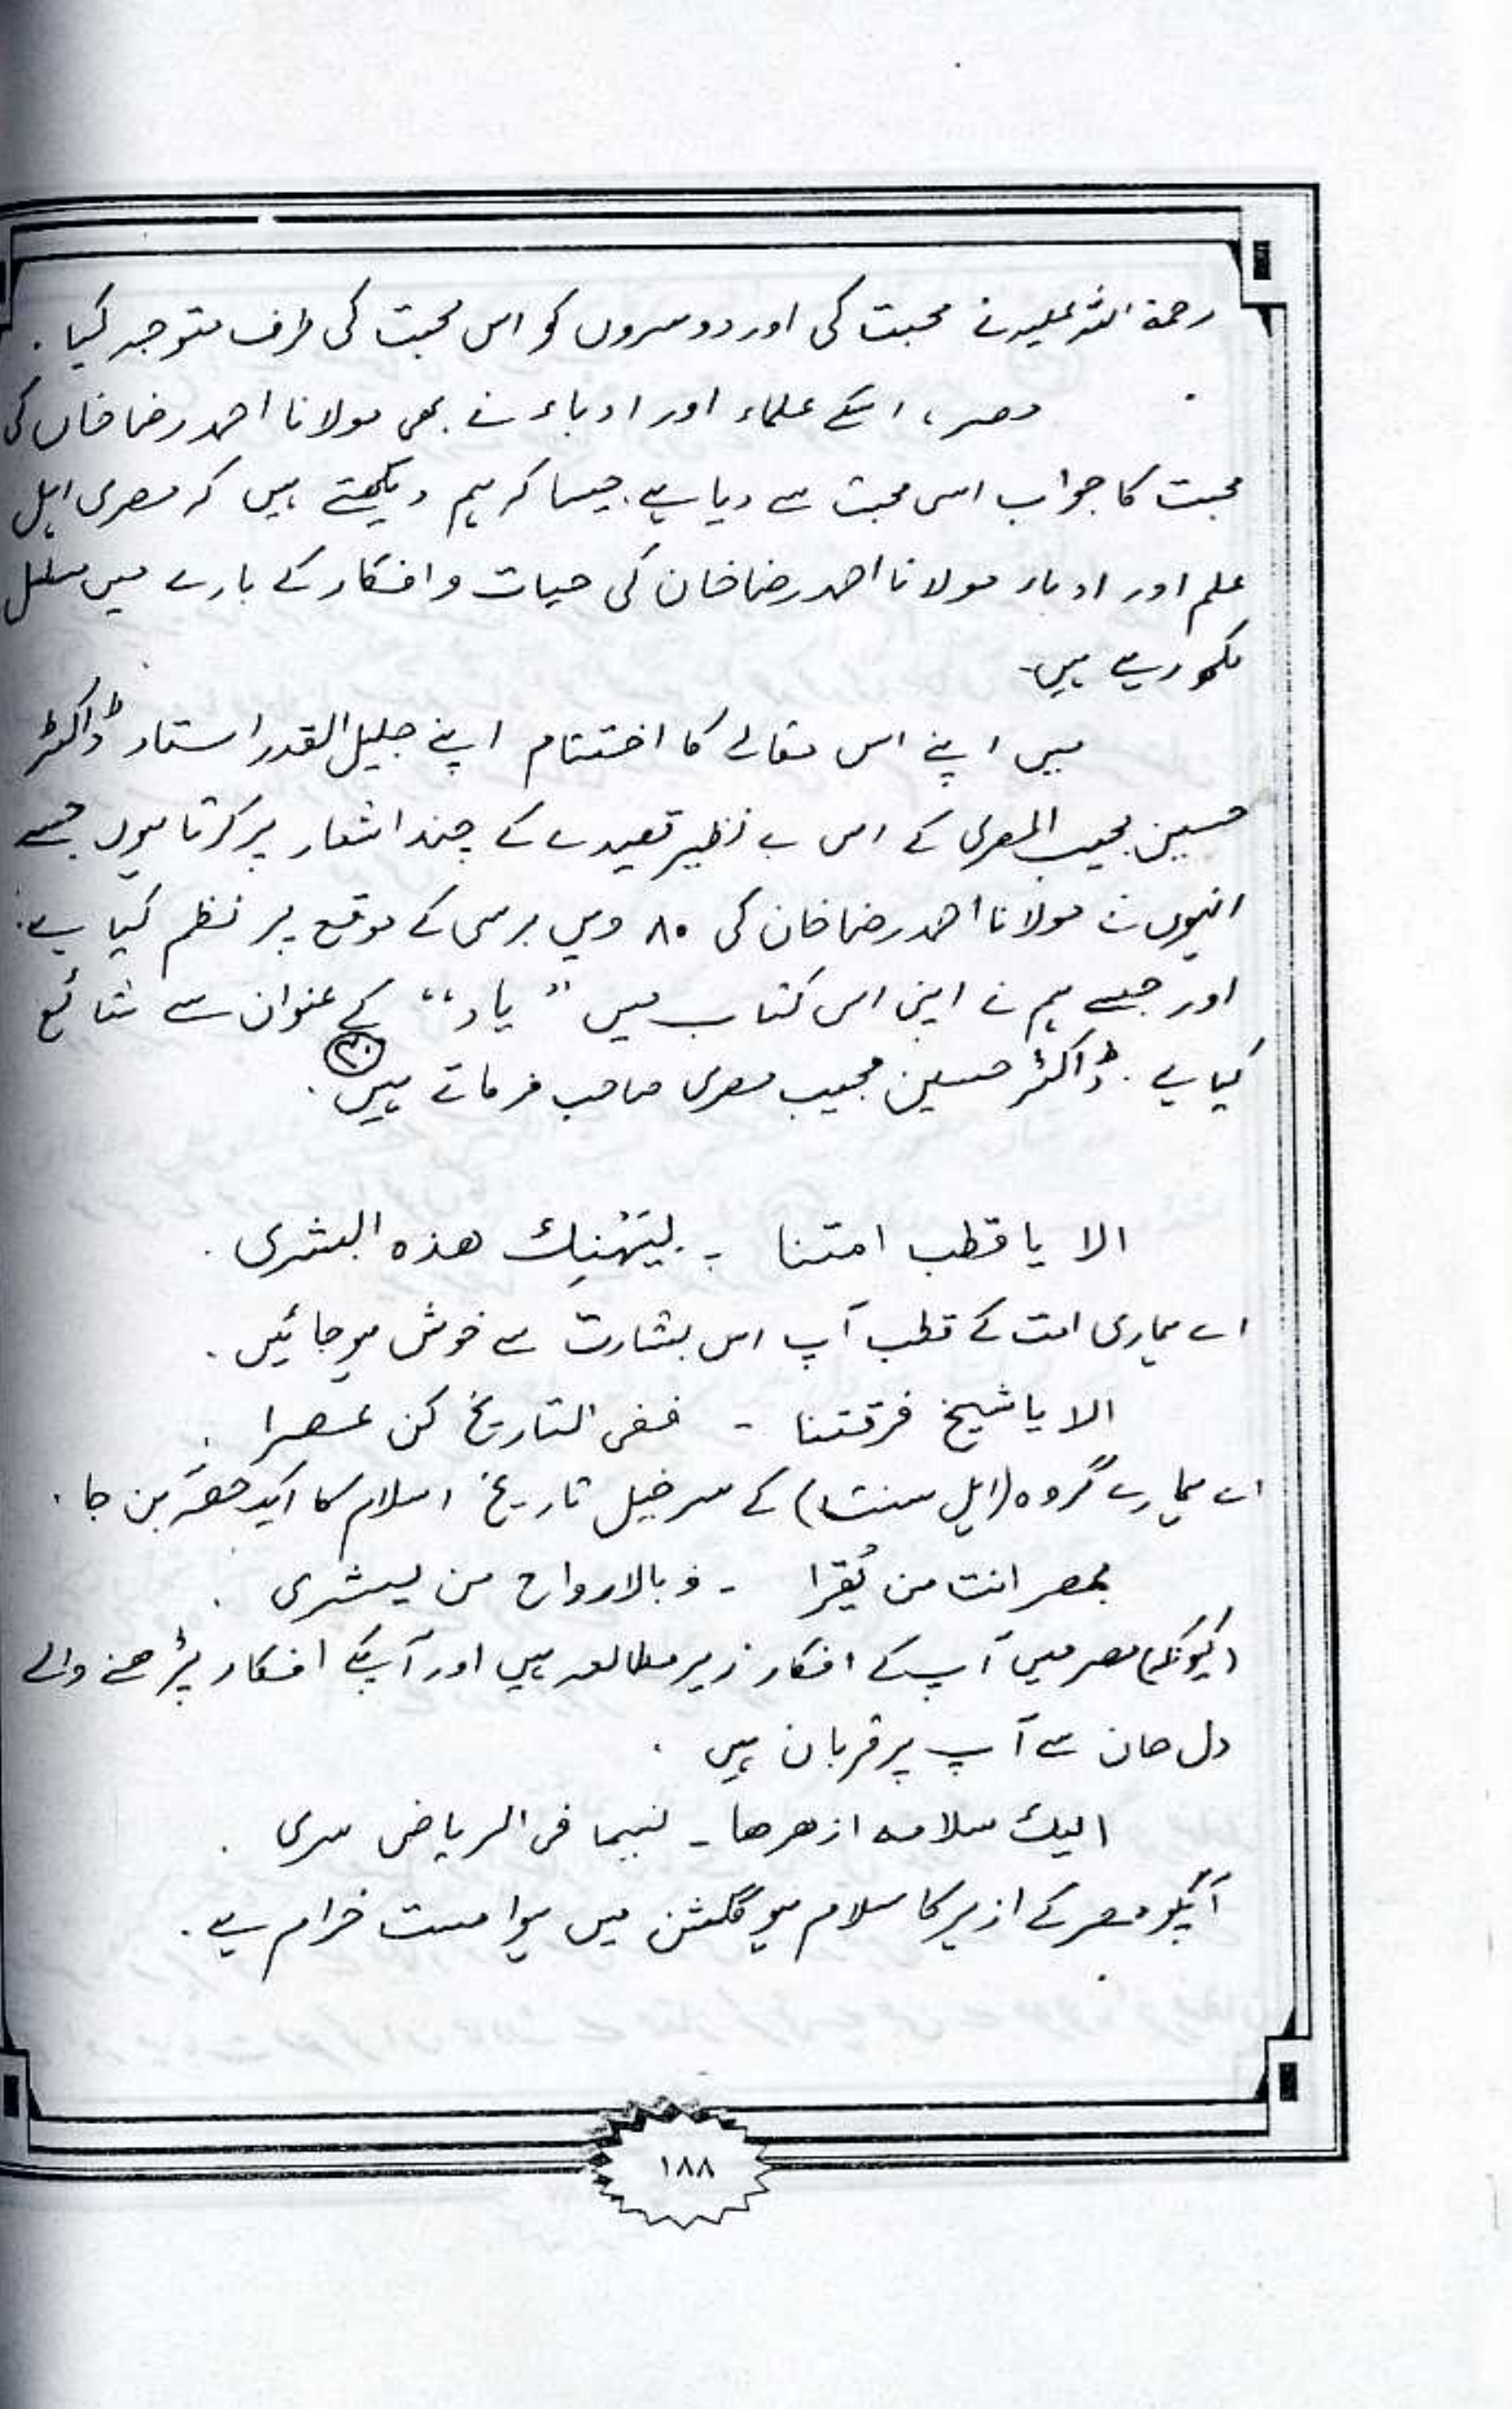 رحمۃ اللہ علیہ نے محبت کی اور دوسروں کو اس محبت کی طرف متوجہ کیا .
مصر، اسکے علماء اور ادباء نے بھی مولانا احمد رضا خاں کی
محبت کا جواب اسی محبت سے دیا ہے . جیسا کہ ہم دیکھتے ہیں کہ مصری اہل
علم اور ادباء مولانا احمد رضا خان کی حیات و افکار کے بارے میں مسلسل
لکھ رہے ہیں -
میں اپنے اس مقالے کا اختتام اپنے جلیل القدر استاد ڈاکٹر
حسین مجیب المصری کے اس بے نظیر قصیدے کے چند اشعار پر کرتا ہوں جسے
انہوں نے مولانا احمد رضا خان کی ۸۰ ویں برسی کے موقع پر نظم کیا ہے .
اور جسے ہم نے اپنی اس کتاب میں " یاد " کے عنوان سے شائع
کیا ہے . ڈاکٹر حسین مجیب مصری صاحب فرماتے ہیں .
الا یا قطب امتنا - لیَہْنِك هذه البشری .
اے ہماری امت کے قطب آپ اس بشارت سے خوش ہو جائیں .
الا یا شیخ فرقتنا - ففی التاریخ کن عصرا .
اے ہمارے گروہ (اہل سنت) کے سرخیل تاریخ اسلام کا ایک حصہ بن جا .
بمصر انت من یُقرا - و بالارواح من یشری .
(کیونکہ) مصر میں آپ کے افکار زیر مطالعہ ہیں اور آپکے افکار پڑھنے والے
دل جان سے آپ پر قربان ہیں .
الیك سلامہ ازهرها - نسیما فی الریاض سری .
آپکو مصر کے ازہر کا سلام ہو گلشن میں ہوا مست خرام ہے .
۱۸۸